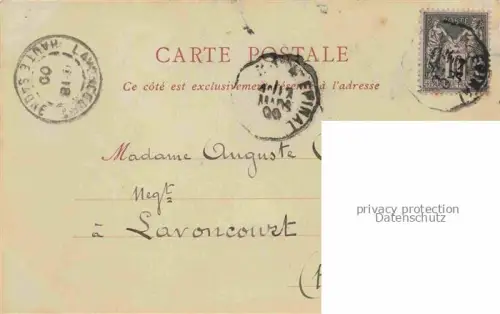 CARTE POSTALE
Ce côté est exclusivement réservé à l'adresse
POSTE
10
LAVONCOURT
HAUTE SAONE
18
00
PINAL
00
Madame Auguste
Negt
à Lavoncourt
privacy protection
Datenschutz